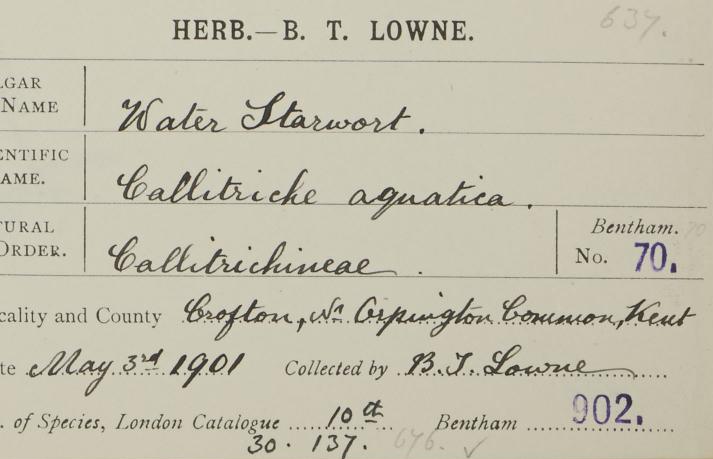 HERB.—B. T. LOWNE. 637.
LGAR
NAME Water Starwort.
ENTIFIC
AME. Callitriche aquatica.
TURAL
ORDER. Callitrichineae. Bentham. 70
No. 70.
cality and County Crofton, Nr Orpington Common, Kent
te May 3rd 1901 Collected by B. T. Lowne
. of Species, London Catalogue 10th Bentham 902.
30. 137. 676. ✓